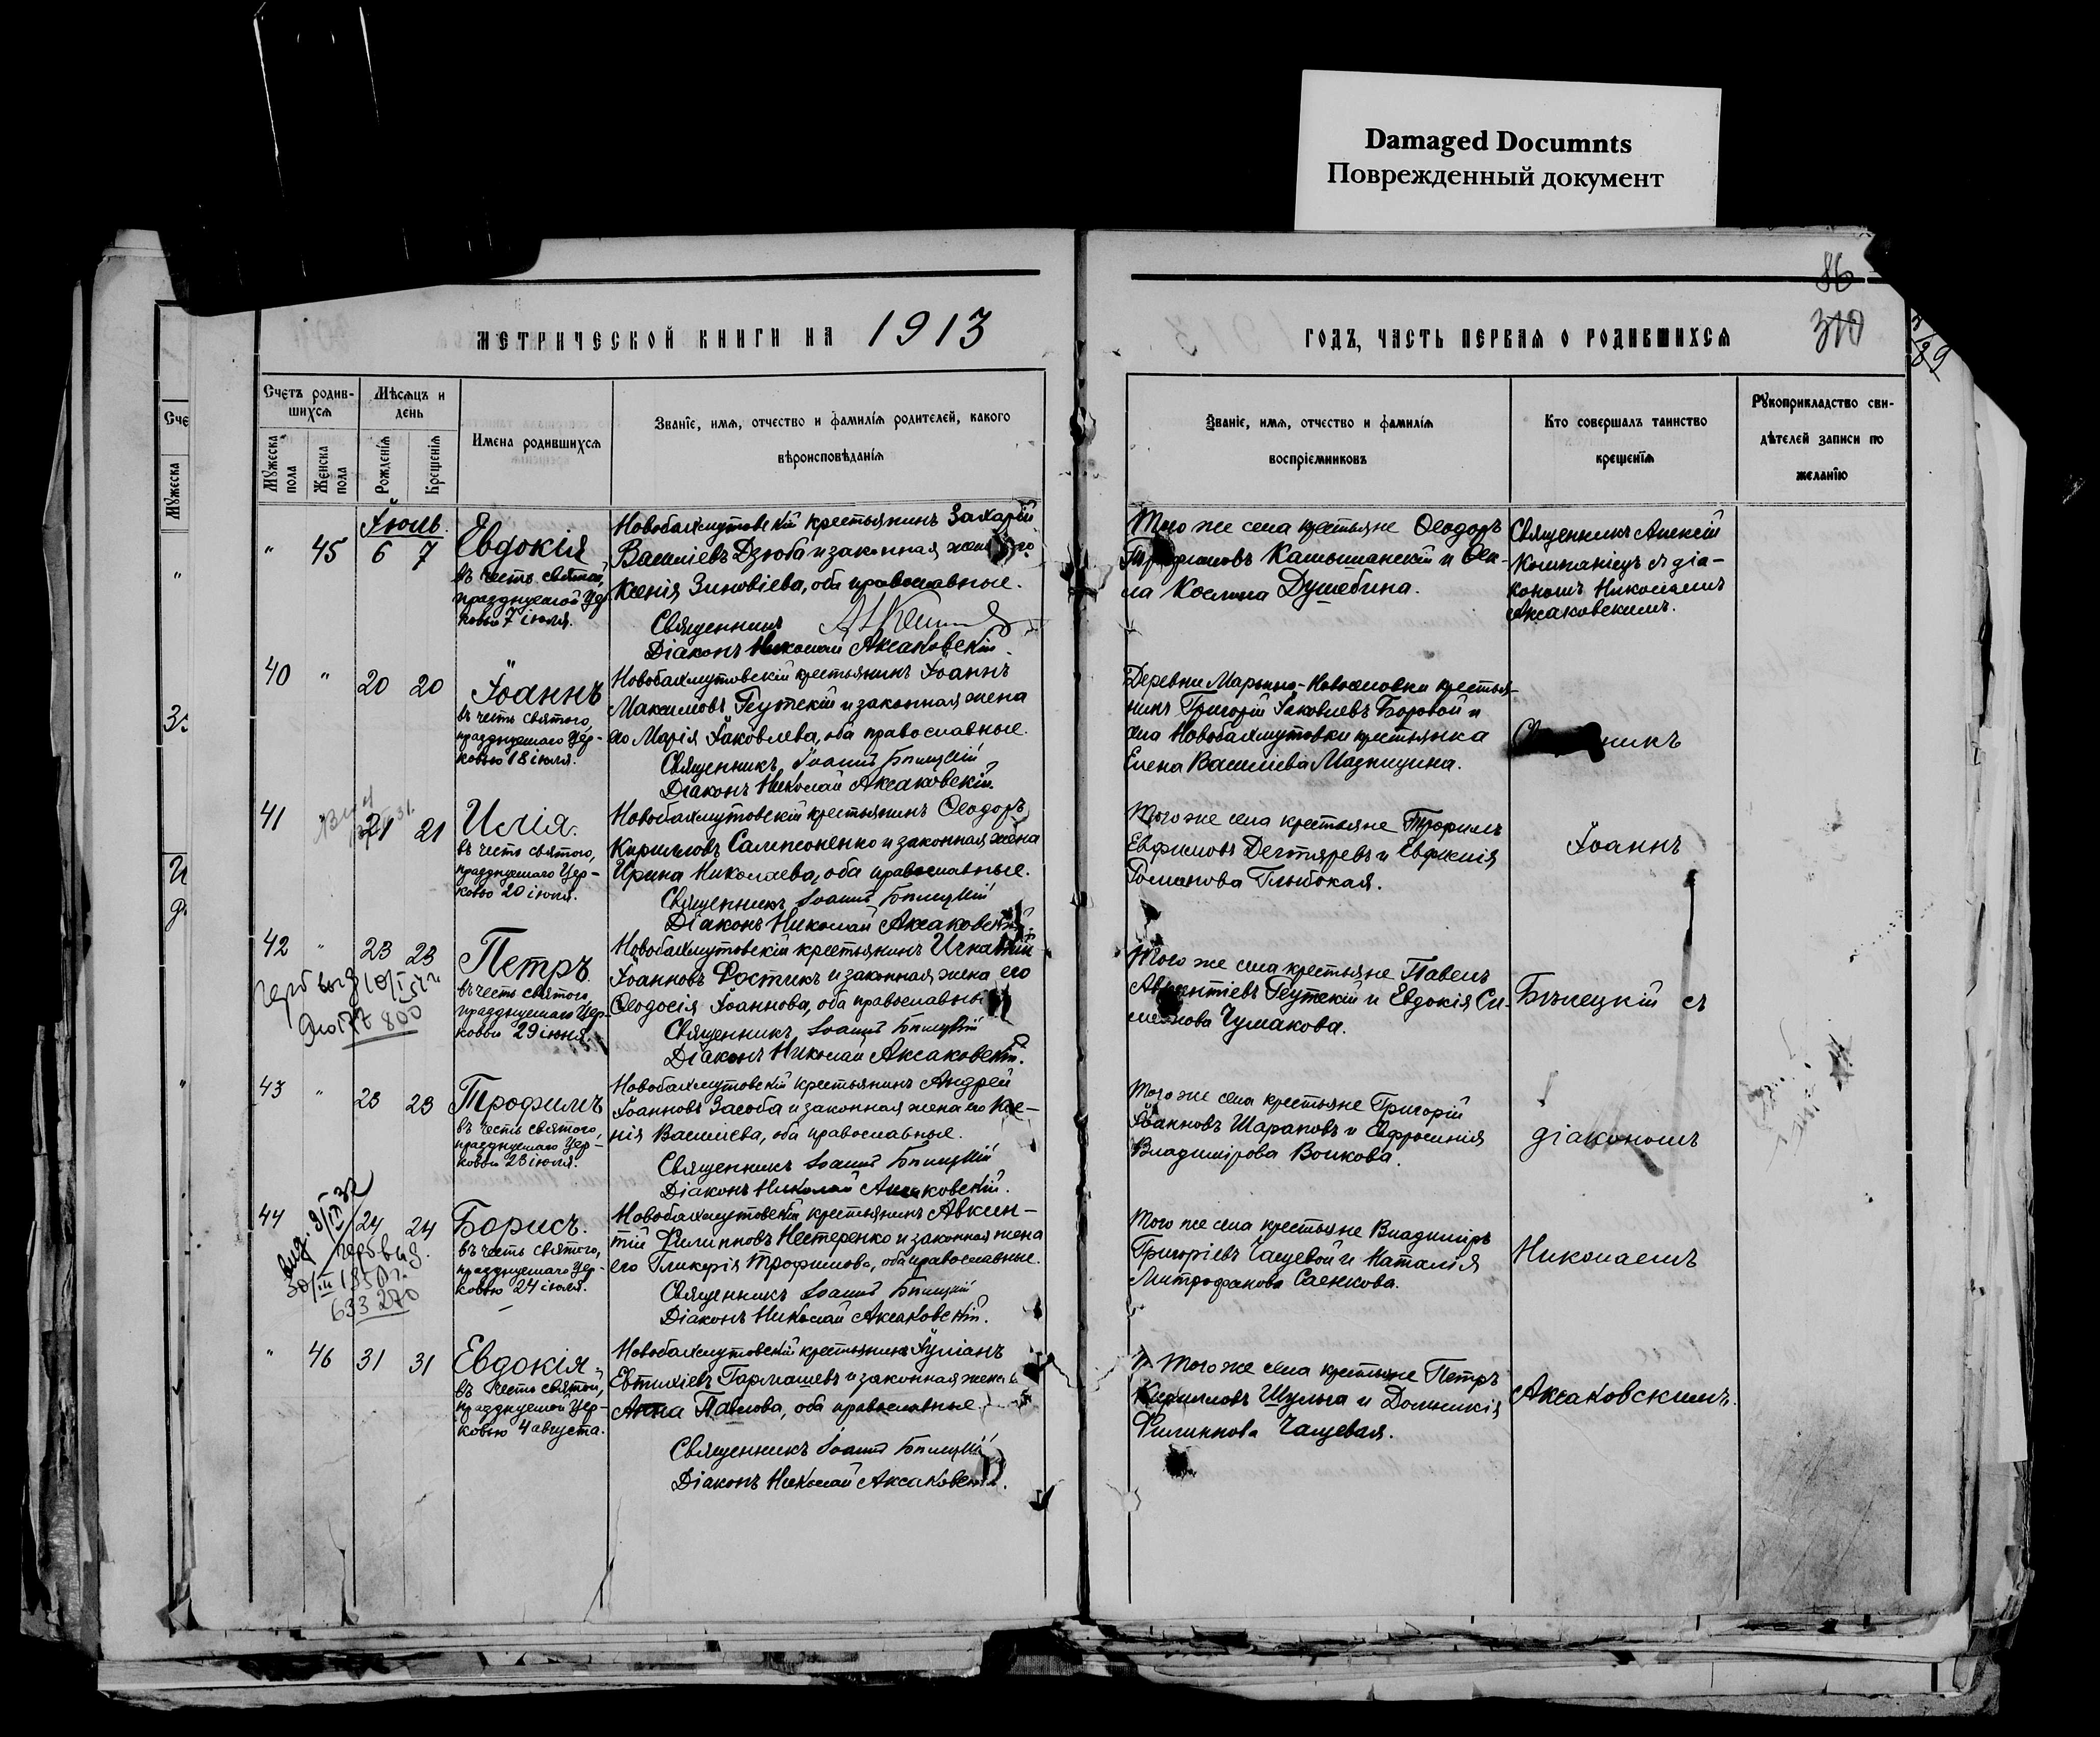 Damaged Documnts
Поврежденный документ
86
310
МЕТРИЧЕСКОЙ КНИГИ НА 1913
ГОДЪ, ЧАСТЬ ПЕРВАЯ О РОДИВШИХСЯ
89
Счетъ родив-
шихся
Мѣсяцъ и
день
Имена родившихся
Званїе, имя, отчество и фамилїя родителей, какого
вѣроисповѣданїя
Мȣжеска
пола
Женска
пола
Рожденїя
Крещенїя
Званїе, имя, отчество и фамилїя
воспрїемниковъ
Кто совершалъ таинство
крещенїя
Рȣкоприкладство сви-
дѣтелей записи по
желанїю
Сче
Мȣжеска
Іюль.
" 45 6 7
Евдокія
въ честь святой,
празднуемой Цер-
ковью 7 іюля.
Новобахмутовскій крестьянинъ Захарій
Васильевъ Дзюба и законная жена его
Ксенія Зиновіева, оба православные.
Священникъ
Діаконъ Николай Аксаковскій.
Того же села крестьяне Ѳеодоръ
Камышанскій и
Космина Душебина.
Священникъ Алексій
Компаніецъ съ діа-
кономъ Николаемъ
Аксаковскимъ.
40 " 20 20
Іоаннъ
въ честь святого,
празднуемаго Цер-
ковью 18 іюля.
Новобахмутовскій крестьянинъ Іоаннъ
Максимовъ Реутскій и законная жена
его Марія Іаковлева, оба православные.
Священникъ Іоаннъ Бѣлецкій
Діаконъ Николай Аксаковскій.
Деревни Марьино-Новоселовки крестья-
нинъ Григорій Іаковлевъ Боровой и
села Новобахмутовки крестьянка
Елена Васильева Мазницина.
41 21 21
Илія.
въ честь святого,
празднуемаго Цер-
ковью 20 іюля.
Новобахмутовскій крестьянинъ Ѳеодоръ
Кирилловъ Сампоненко и законная жена
Ирина Николаева, оба православные.
Священникъ Іоаннъ Бѣлецкій
Діаконъ Николай Аксаковскій.
Того же села крестьяне Трофимъ
Евфимовъ Дегтяревъ и Евфимія
Романова Глыбокая.
Іоаннъ
42 " 23 23
Петръ.
въ честь святого,
празднуемаго Цер-
ковью 29 іюня.
800
Новобахмутовскій крестьянинъ Игнатій
Іоанновъ Фостикъ и законная жена его
Ѳеодосія Іоаннова, оба православны
Священникъ Іоаннъ Бѣлецкій
Діаконъ Николай Аксаковскій.
Того же села крестьяне Павелъ
Реутскій и Евдокія Си-
меонова Чумакова.
Бѣлецкій съ
43 " 23 23
Трофимъ
въ честь святого,
празднуемаго Цер-
ковью 23 іюля.
Новобахмутовскій крестьянинъ Андрей
Іоанновъ Засоба и законная жена его Ксе-
нія Васильева, оба православные.
Священникъ Іоаннъ Бѣлецкій
Діаконъ Николай Аксаковскій.
Того же села крестьяне Григорій
Іоанновъ Шараповъ и Евфросинія
Владимірова Волкова.
діакономъ
44 24 24
Борисъ.
въ честь святого,
празднуемаго Цер-
ковью 24 іюля.
633 270
Новобахмутовскій крестьянинъ Авксен-
тій Филипповъ Нестеренко и законная жена
его Гликерія Трофимова, оба православные.
Священникъ Іоаннъ Бѣлецкій
Діаконъ Николай Аксаковскій.
Того же села крестьяне Владиміръ
Григоріевъ Чащевой и Наталія
Митрофанова Саенкова.
Николаемъ
" 46 31 31
Евдокія
въ честь святой,
празднуемой Цер-
ковью 4 августа.
Новобахмутовскій крестьянинъ Іуліанъ
Евтихіевъ Гармашевъ и законная жена
Анна Павлова, оба православные.
Священникъ Іоаннъ Бѣлецкій
Діаконъ Николай Аксаковскій.
Того же села крестьяне Петръ
Кирилловъ Шульга и Домникія
Филиппова Чащевая.
Аксаковскимъ.